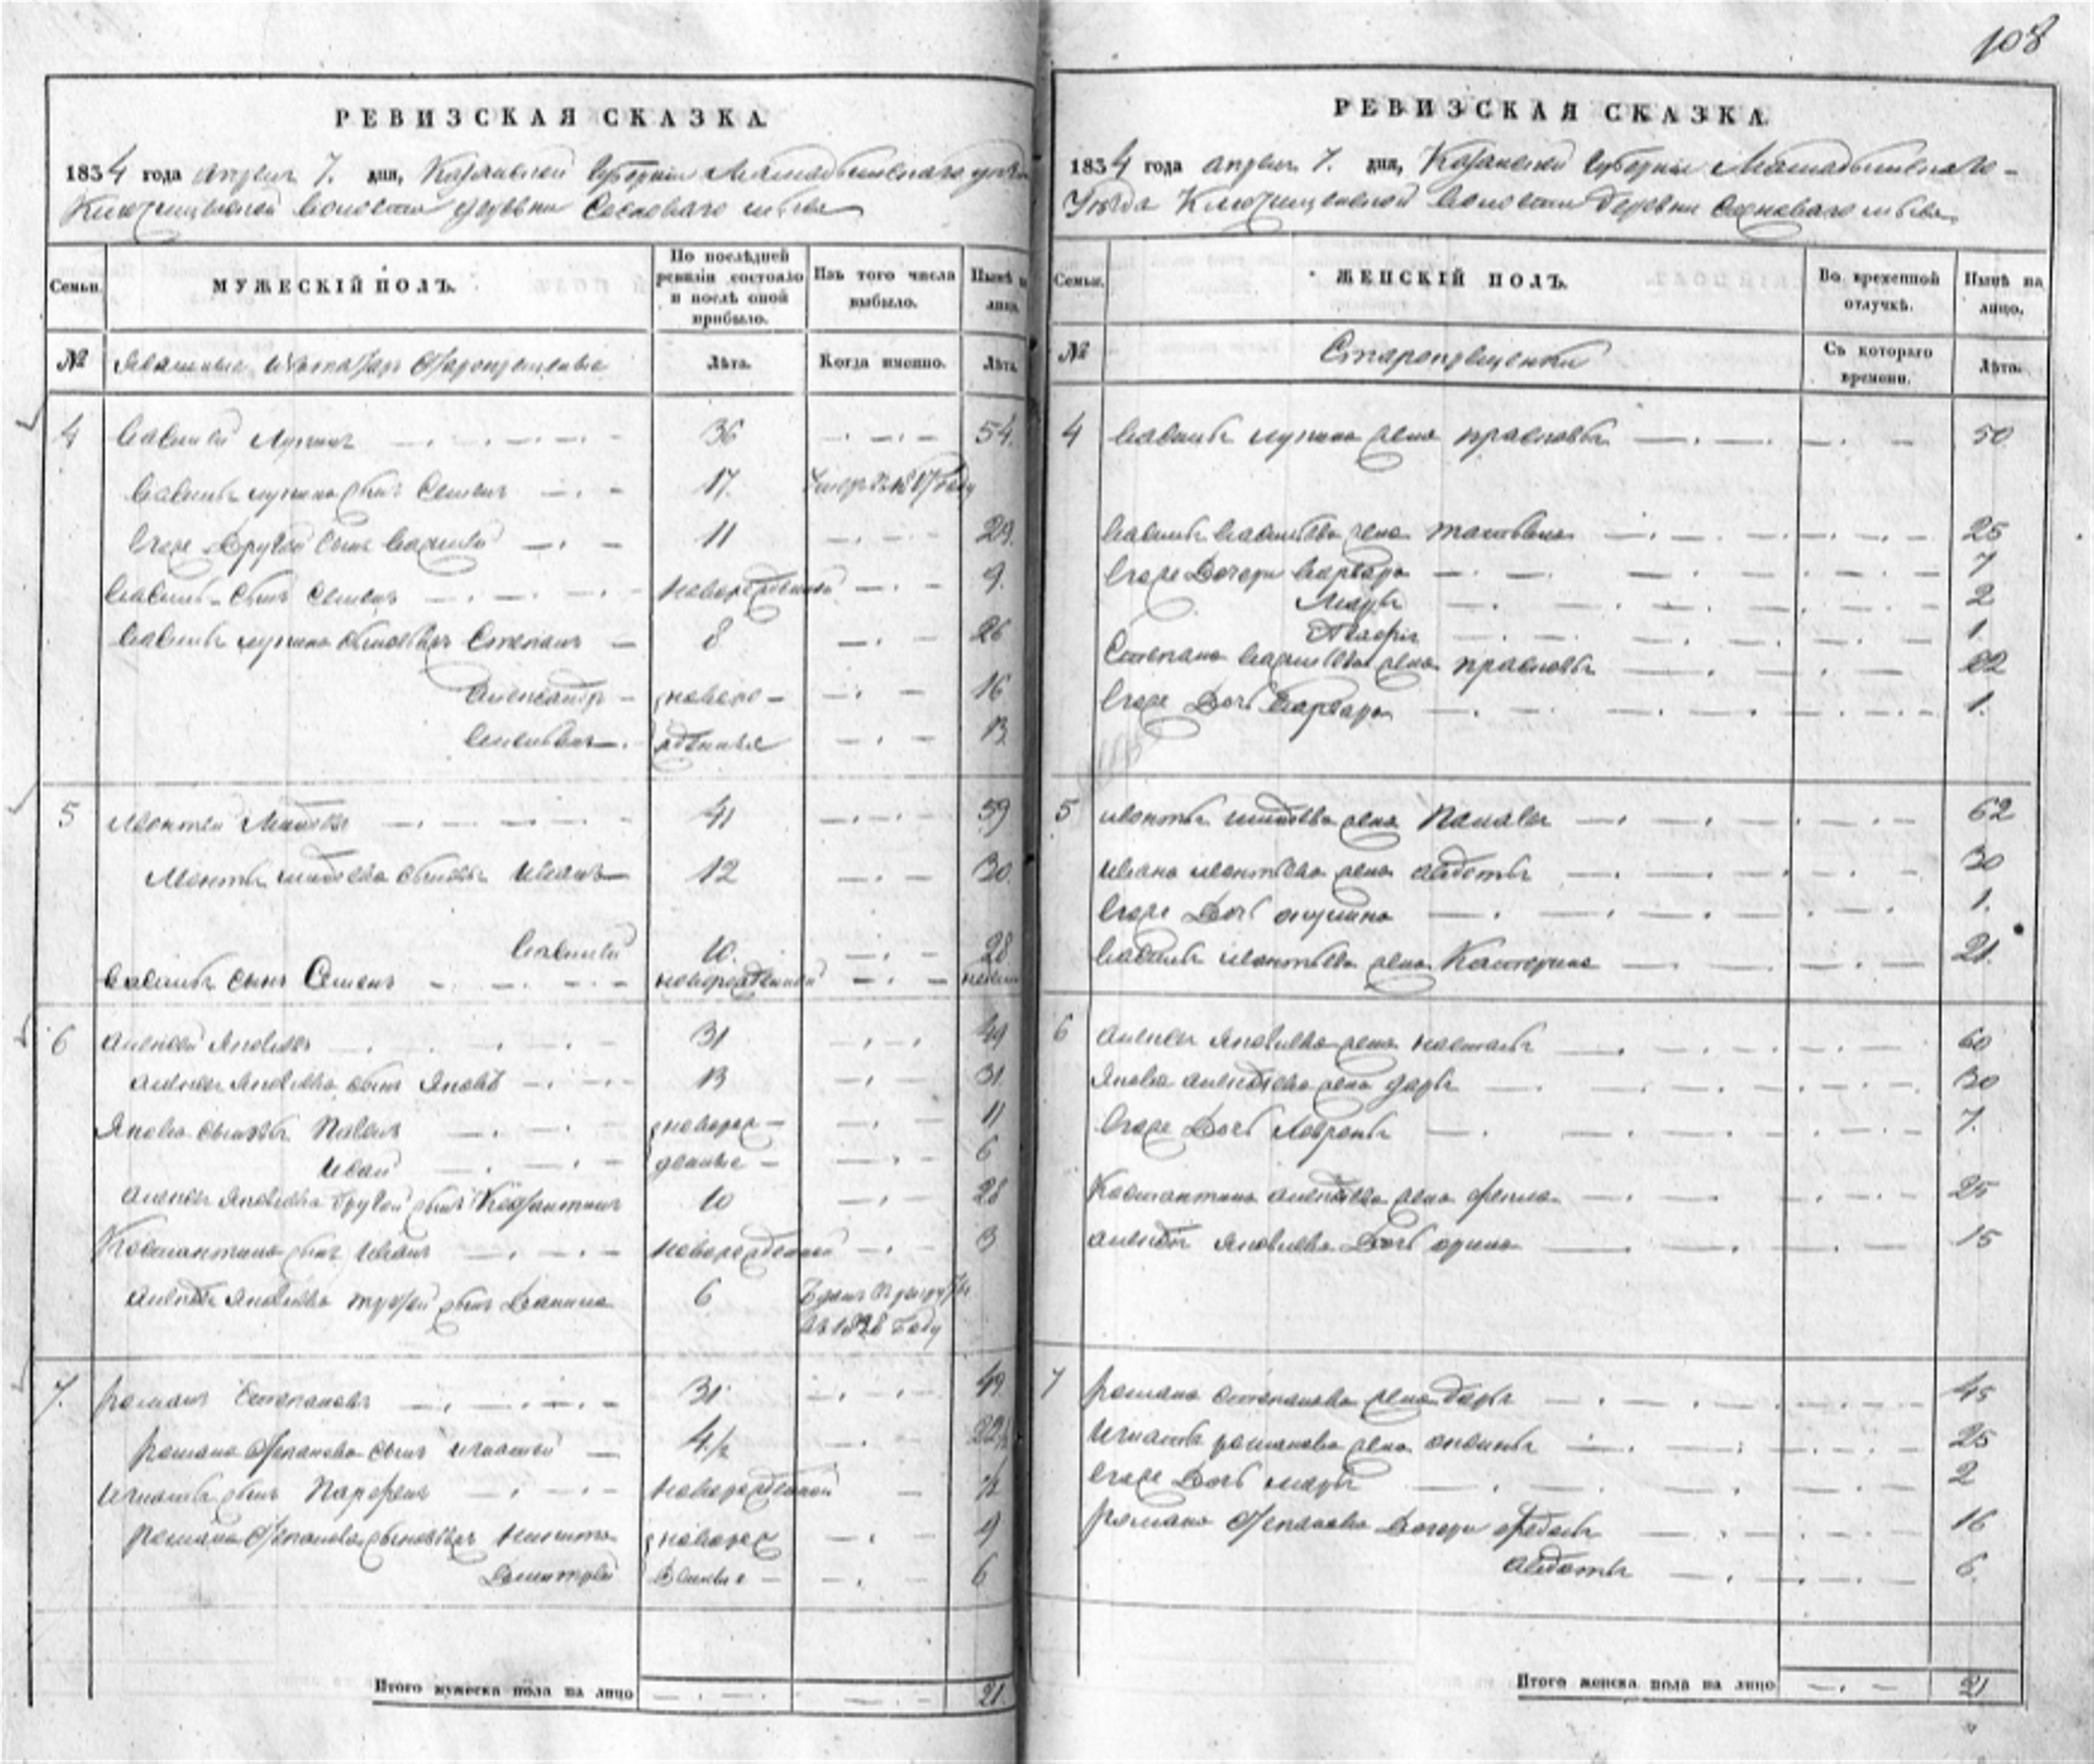 108
РЕВИЗСКАЯ СКАЗКА
1834 года апреля 7. дня, Казанской Губернии Мамадышскаго уезда
Ключищенской волости деревни Сосноваго мыса
Семьи.
МУЖЕСКІЙ ПОЛЪ.
По послѣдней ревизіи состояло и послѣ оной прибыло.
Изъ того числа выбыло.
Нынѣ на лицо.
№
Старокрещеные
Лѣта.
Когда именно.
Лѣта.
4 Василей Лукинъ 36 54.
Василья лукина сынъ Семенъ 17. Умеръ въ 1817 году
Егоже Другой сынъ Василей 11 29.
Василья сынъ Семенъ новорожденной 9.
Василья лукина сыновья Степанъ 8 26
Александръ новоро- 16
Селиванъ жденные 13
5 Леонтей 41 59
Леонтья сыновья Иванъ 12 30.
Василей 10. 28
Василья сынъ Семенъ новорожденной
6 Алексей Яковлевъ 31 49
Алексея Яковлева сынъ Яковъ 13 31
Якова сыновья Павелъ новорож- 11
Иван денные 6
Алексея Яковлева другой сынъ Костянтинъ 10 28
Костянтина сынъ Иванъ новорожденной 3
Алексея Яковлева третей сынъ Данила 6 Зданъ в рекруты
въ 1828 году
7. Романъ Степановъ 31 49
Романа Степанова сынъ Игнатей 4 1/2 22 1/2
Игнатья сынъ Парфенъ новорожденной 1/2
Романа Степанова сыновья Никита новорож 9
Дмитрей денные 6
Итого мужеска пола на лицо 21.
РЕВИЗСКАЯ СКАЗКА
1834 года апреля 7. дня, Казанской Губернии Мамадышскаго
Уезда Ключищенской волости Деревни Сосноваго мыса
Семьи.
ЖЕНСКІЙ ПОЛЪ.
Во временной отлучкѣ.
Нынѣ на лицо.
№
Старокрещенки
Съ котораго времени.
Лѣта.
4 Василья лукина жена прасковья 50
Василья Васильева жена татьяна 25
Егоже Дочери Варвара 7
Марья 2
1
Степана Васильева жена прасковья 22
Егоже Дочь Варвара 1.
5 Леонтья жена 62
Ивана леонтьева жена авдотья 30
Егоже Дочь акулина 1.
Василья леонтьева жена Катерина 21.
6 Алексея Яковлева жена настасья 60
Якова алексеева жена дарья 30
Егоже Дочь 7.
Костантина алексеева жена фекла 25
алексея Яковлева Дочь орина 15
7 Романа степанова жена дарья 45
Игнатья романова жена аксинья 25
Егоже Дочь марья 2
Романа Степанова Дочери федосья 16
авдотья 6.
Итого женска пола на лицо 21